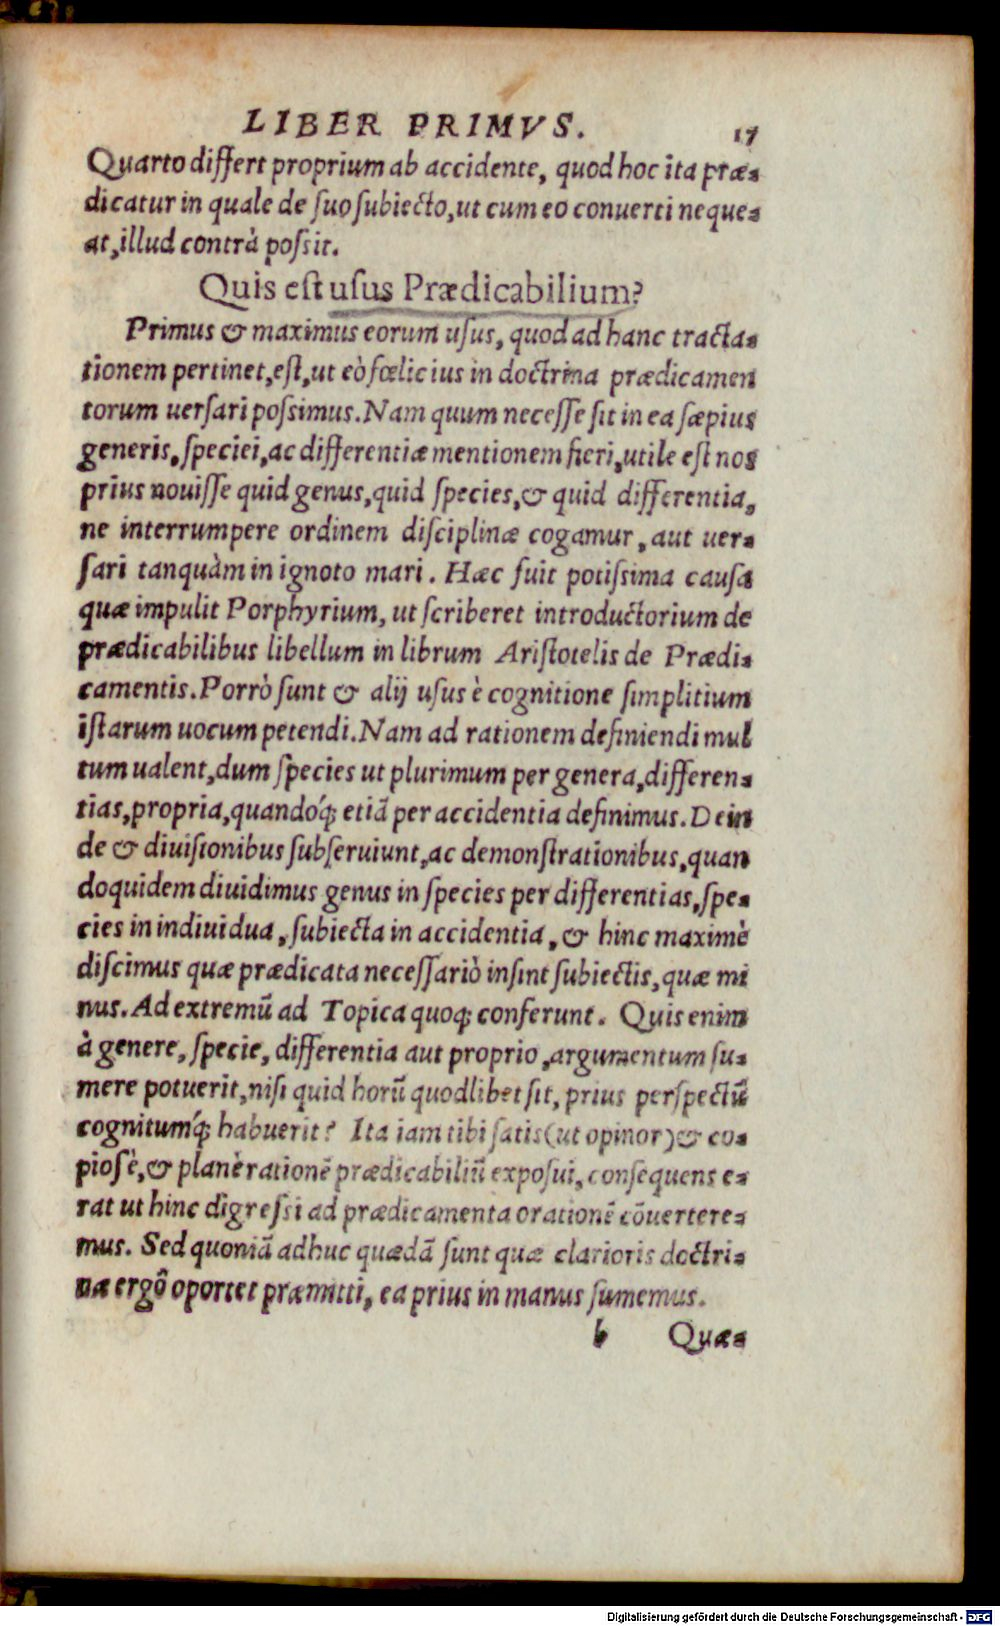 LIBER PRIMVS. 17
Quarto differt proprium ab accidente, quod hoc ita præ-
dicatur in quale de suo subiecto, ut cum eo conuerti neque-
at, illud contrà possit.
Quis est usus Prædicabilium?
Primus & maximus eorum usus, quod ad hanc tracta-
tionem pertinet, est, ut eò fœlicius in doctrina prædicamen
torum uersari possimus. Nam quum necesse sit in ea sæpius
generis, speciei, ac differentiæ mentionem fieri, utile est nos
prius nouisse quid genus, quid species, & quid differentia,
ne interrumpere ordinem disciplinæ cogamur, aut uer-
sari tanquàm in ignoto mari. Hæc fuit potissima causa
quæ impulit Porphyrium, ut scriberet introductorium de
prædicabilibus libellum in librum Aristotelis de Prædi-
camentis. Porrò sunt & alij usus è cognitione simplitium
istarum uocum petendi. Nam ad rationem definiendi mul
tum ualent, dum species ut plurimum per genera, differen-
tias, propria, quandóq; etiã per accidentia definimus. Dein
de & diuisionibus subseruiunt, ac demonstrationibus, quan
doquidem diuidimus genus in species per differentias, spe-
cies in indiuidua, subiecta in accidentia, & hinc maximè
discimus quæ prædicata necessariò insint subiectis, quæ mi
nus. Ad extremũ ad Topica quoq; conferunt. Quis enim
à genere, specie, differentia aut proprio, argumentum su-
mere potuerit, nisi quid horũ quodlibet sit, prius perspectũ
cognitumq́; habuerit? Ita iam tibi satis (ut opinor) & co-
piosè, & planè rationẽ prædicabiliũ exposui, consequens e-
rat ut hinc digressi ad prædicamenta orationẽ cõuertere-
mus. Sed quoniã adhuc quædã sunt quæ clarioris doctri-
næ ergô oportet præmitti, ea prius in manus sumemus.
b Quæ-
Digitalisierung gefördert durch die Deutsche Forschungsgemeinschaft - DFG